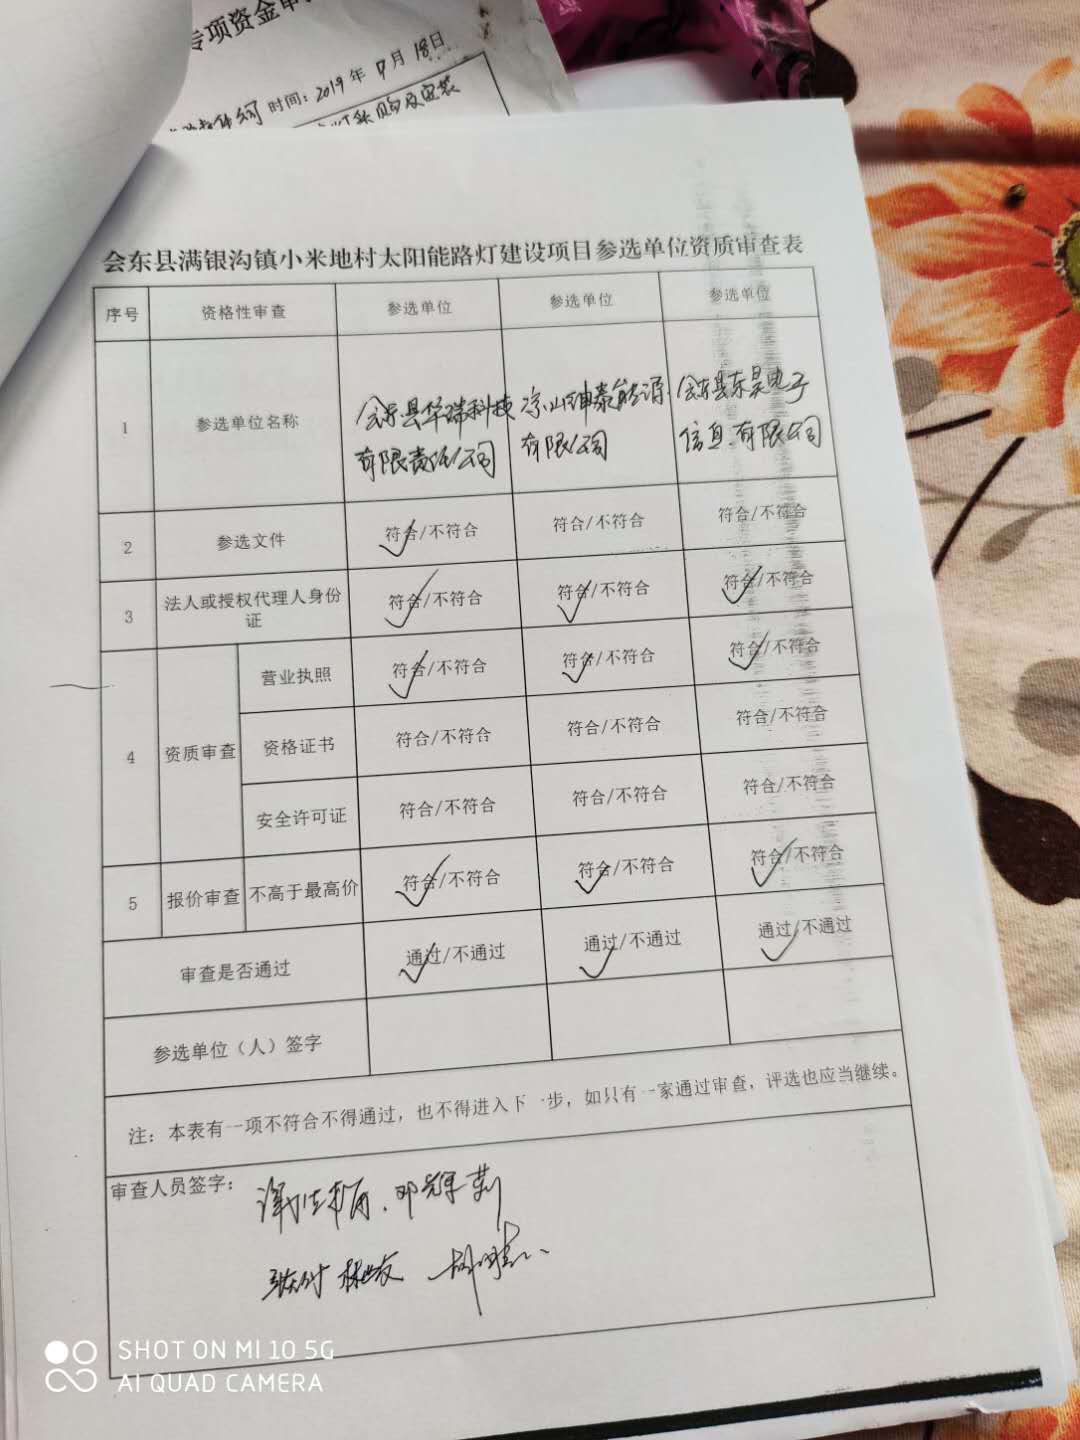 专项资金审
时间：2019年9月18日
购及安装
会东县满银沟镇小米地村太阳能路灯建设项目参选单位资质审查表
序号 资格性审查 参选单位 参选单位 参选单位
1 参选单位名称 会东县华瑞科技 凉山绅泰能源 会东县东昊电子
有限责任公司 有限公司 信息有限公司
2 参选文件 符合/不符合 符合/不符合 符合/不符合
3 法人或授权代理人身份 符合/不符合 符合/不符合 符合/不符合
证
4 资质审查 营业执照 符合/不符合 符合/不符合 符合/不符合
资格证书 符合/不符合 符合/不符合 符合/不符合
安全许可证 符合/不符合 符合/不符合 符合/不符合
5 报价审查 不高于最高价 符合/不符合 符合/不符合 符合/不符合
审查是否通过 通过/不通过 通过/不通过 通过/不通过
参选单位（人）签字
注：本表有一项不符合不得通过，也不得进入下一步，如只有一家通过审查，评选也应当继续。
审查人员签字：
SHOT ON MI 10 5G
AI QUAD CAMERA